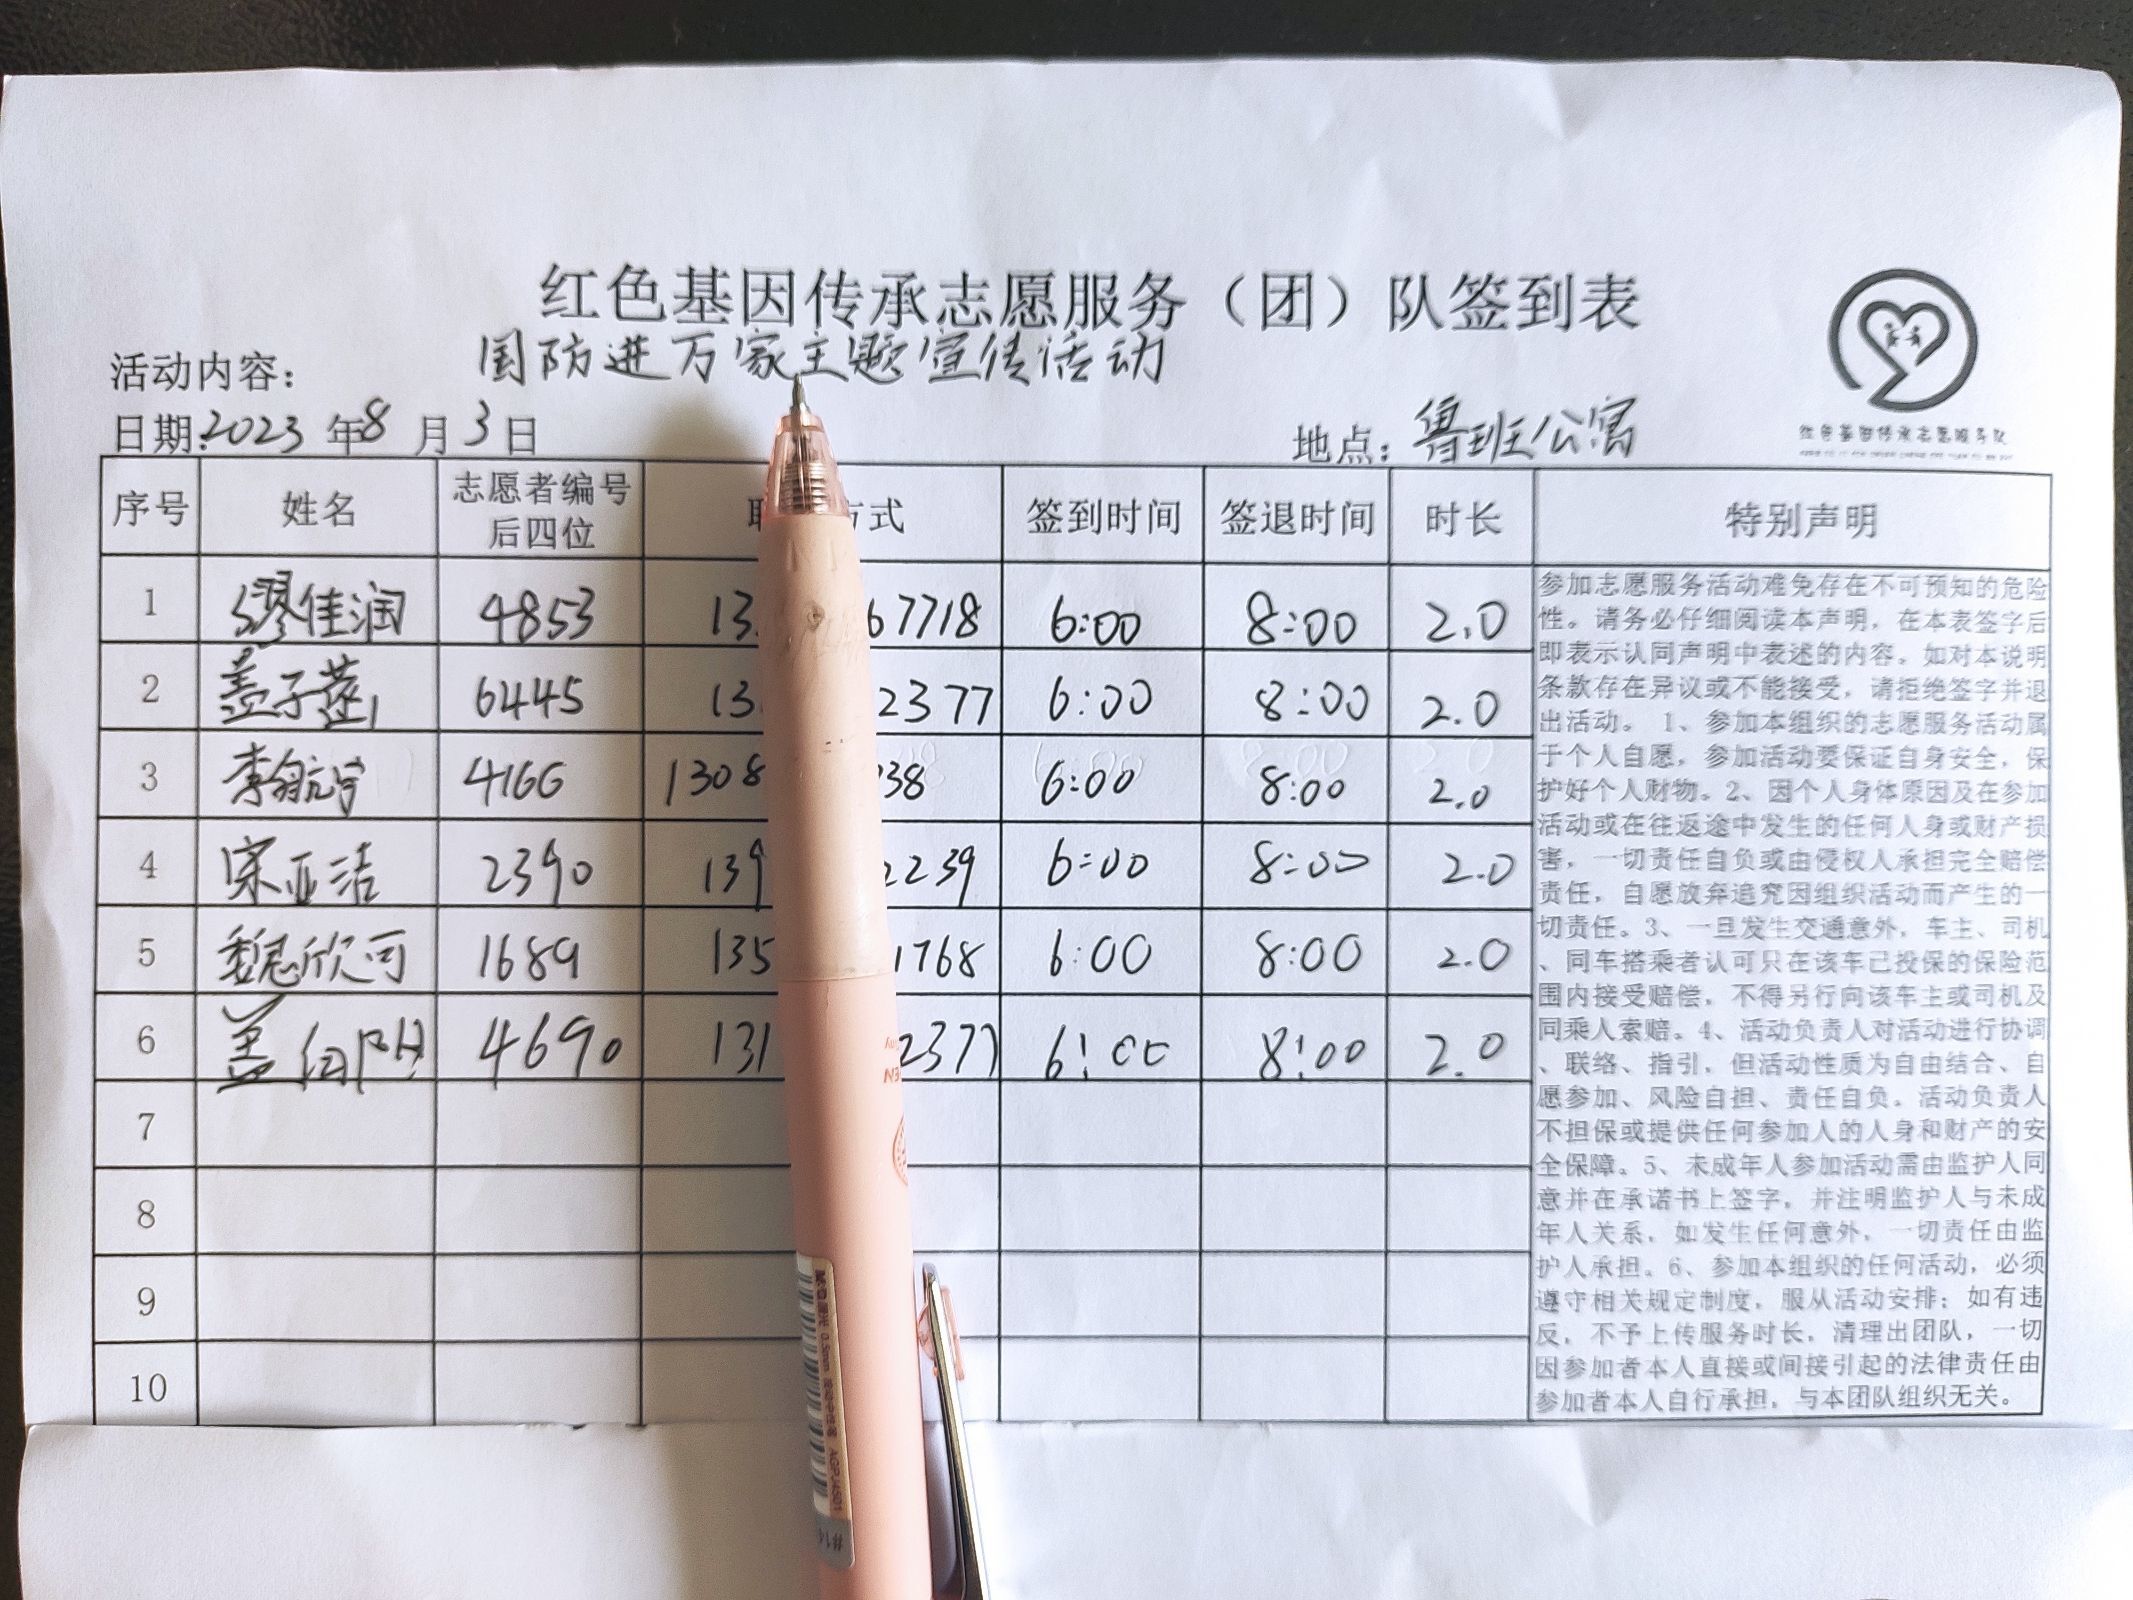 红色基因传承志愿服务（团）队签到表
活动内容：国防进万家主题宣传活动
日期：2023年8月3日 地点：鲁班公寓
红色基因传承志愿服务队
序号 姓名 志愿者编号后四位 方式 签到时间 签退时间 时长 特别声明
1 缪佳润 4853 13 67718 6:00 8:00 2.0
2 盖子莲 6445 13 2377 6:00 8:00 2.0
3 李航宇 4166 1308 38 6:00 8:00 2.0
4 宋亚洁 2390 139 2239 6:00 8:00 2.0
5 魏欣可 1689 135 1768 6:00 8:00 2.0
6 盖 4690 131 2377 6:00 8:00 2.0
7
8
9
10
参加志愿服务活动难免存在不可预知的危险
性。请务必仔细阅读本声明，在本表签字后
即表示认同声明中表述的内容。如对本说明
条款存在异议或不能接受，请拒绝签字并退
出活动。 1、参加本组织的志愿服务活动属
于个人自愿，参加活动要保证自身安全，保
护好个人财物。2、因个人身体原因及在参加
活动或在往返途中发生的任何人身或财产损
害，一切责任自负或由侵权人承担完全赔偿
责任，自愿放弃追究因组织活动而产生的一
切责任。3、一旦发生交通意外，车主、司机
、同车搭乘者认可只在该车已投保的保险范
围内接受赔偿，不得另行向该车主或司机及
同乘人索赔。4、活动负责人对活动进行协调
、联络、指引，但活动性质为自由结合、自
愿参加、风险自担、责任自负。活动负责人
不担保或提供任何参加人的人身和财产的安
全保障。5、未成年人参加活动需由监护人同
意并在承诺书上签字，并注明监护人与未成
年人关系，如发生任何意外，一切责任由监
护人承担。6、参加本组织的任何活动，必须
遵守相关规定制度，服从活动安排；如有违
反，不予上传服务时长，清理出团队，一切
因参加者本人直接或间接引起的法律责任由
参加者本人自行承担，与本团队组织无关。
0.5mm
AGPJ4501